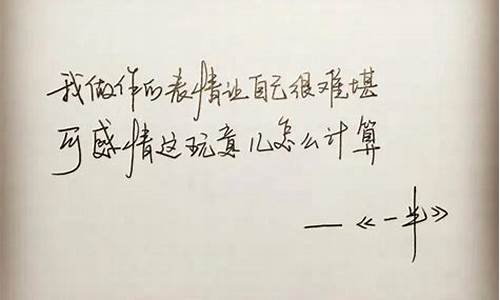 我做作的表情让自己很难堪
可感情这玩意儿怎么计算
—《一半》